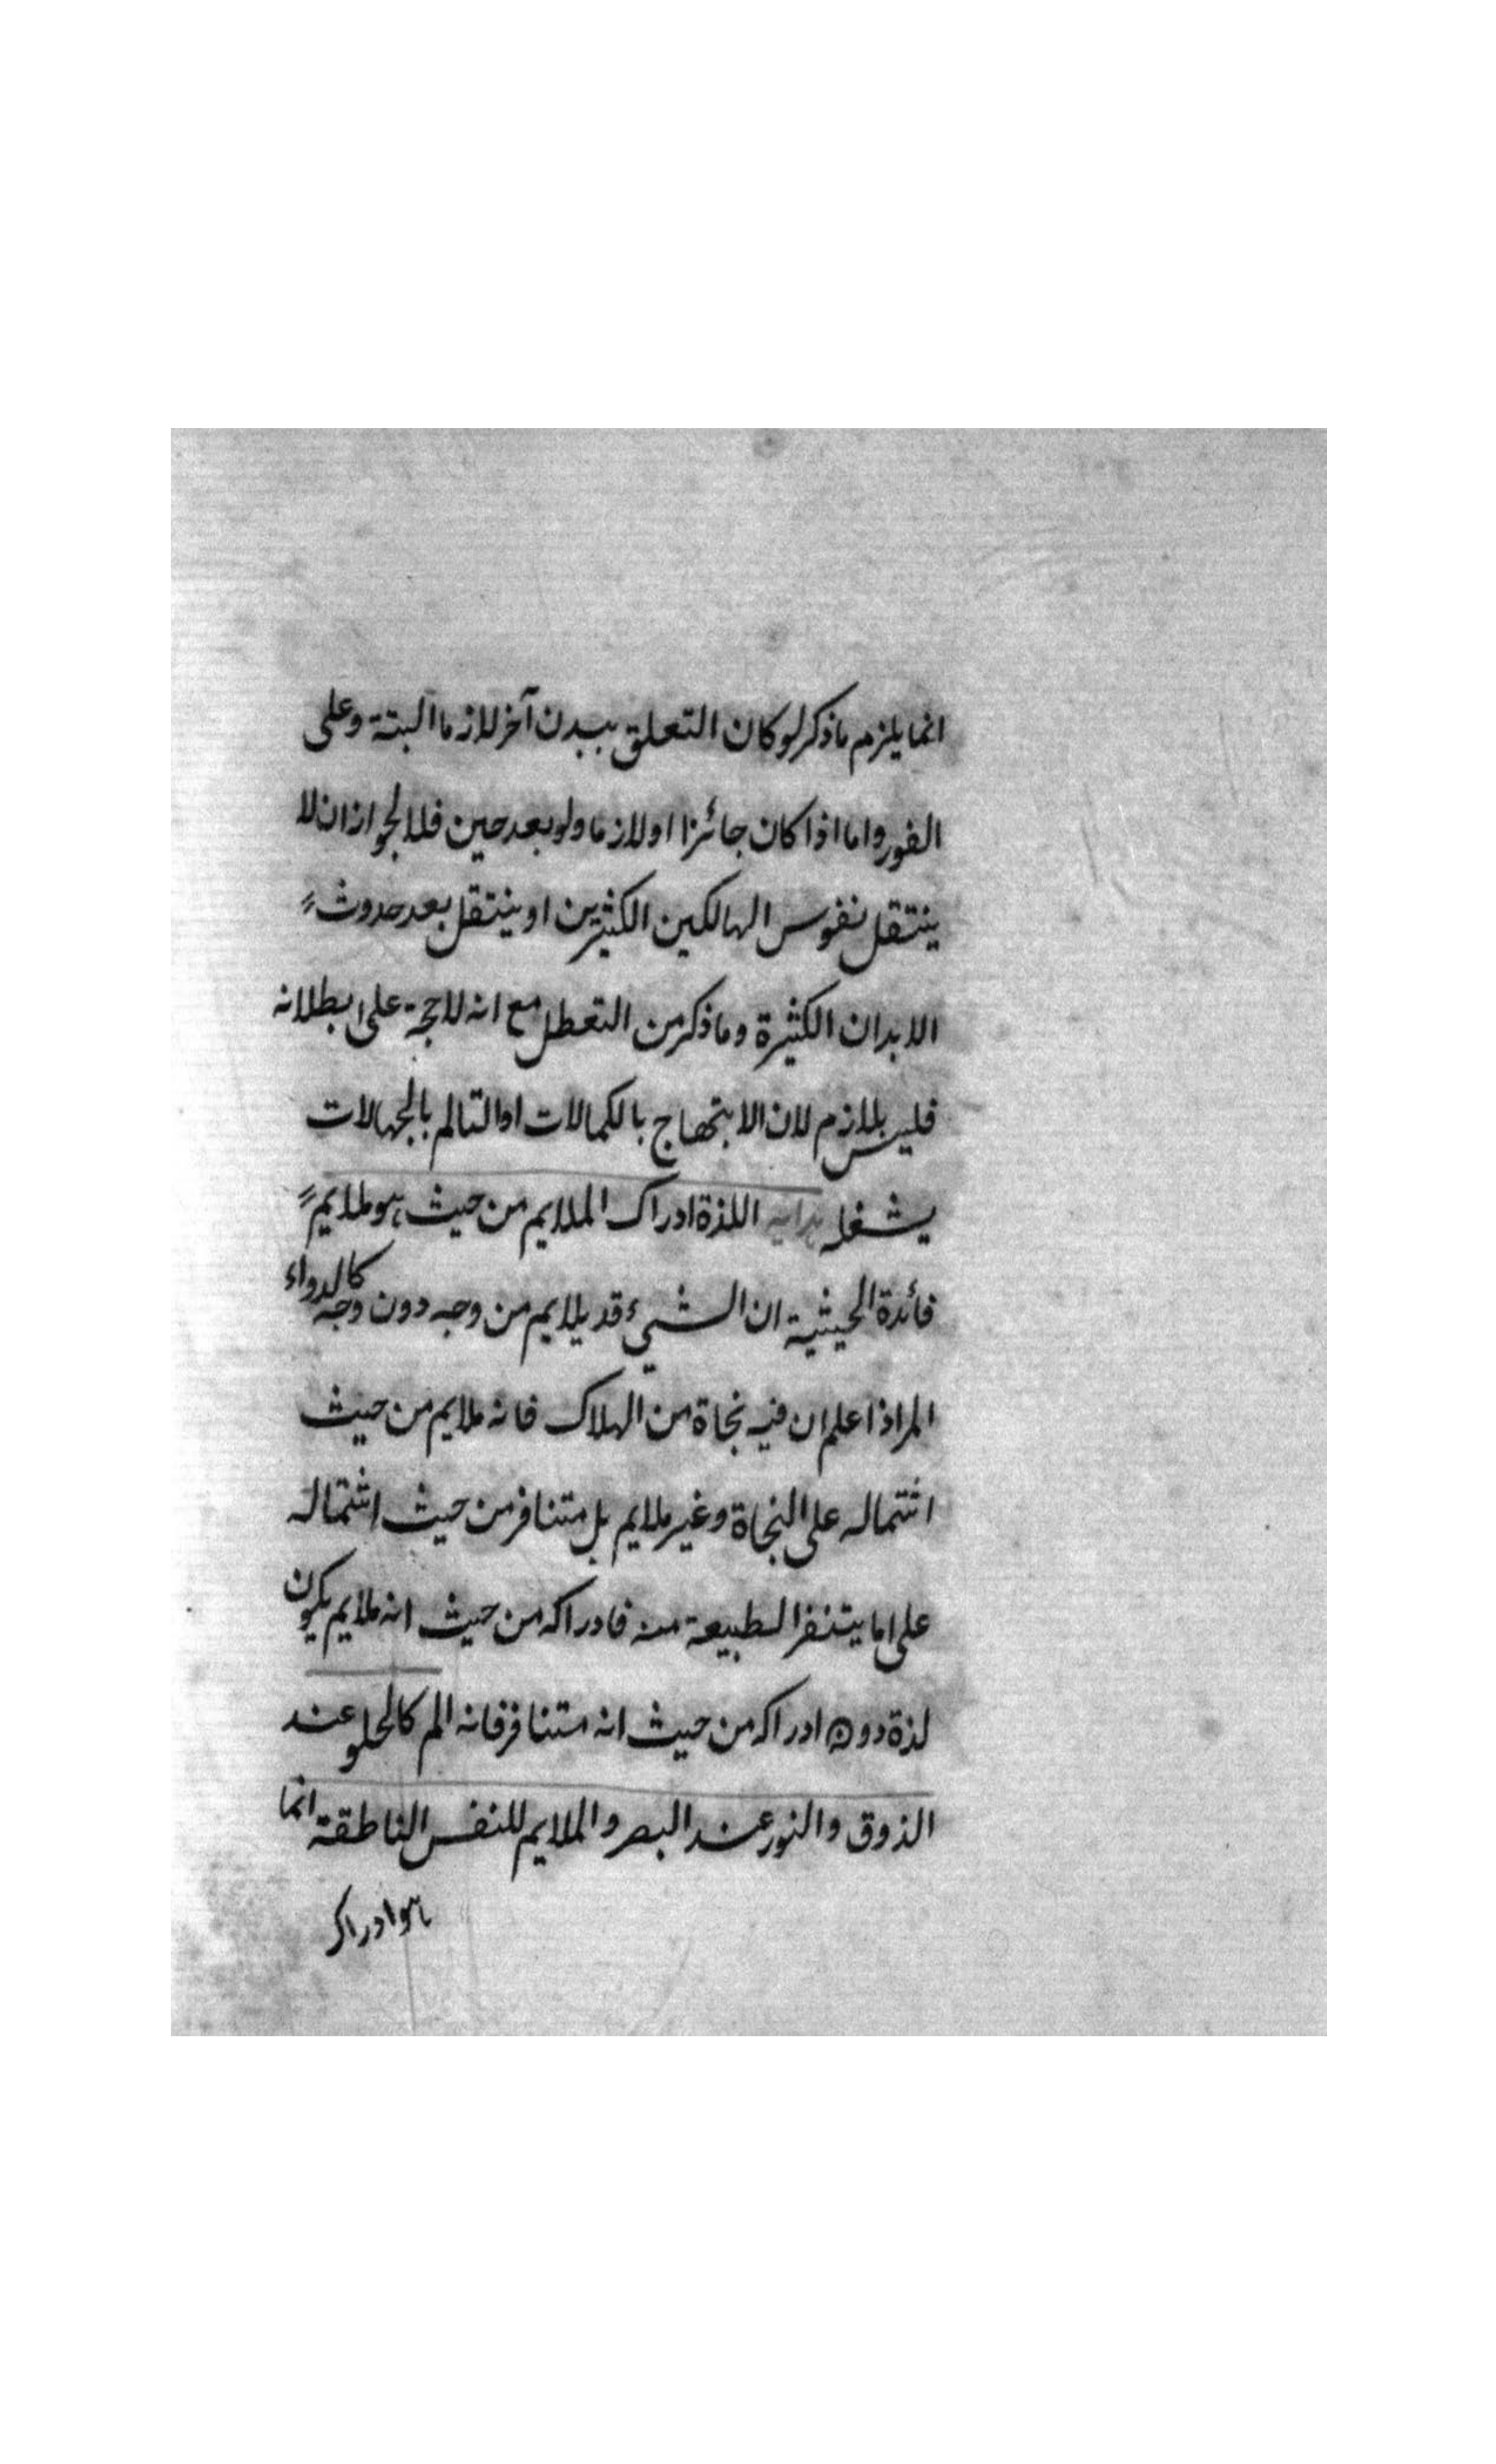 انما يلزم ماذكر لوكان التعلق ببدن آخر لازما البتة وعلى
الفور واما اذا كان جائزا اولازما ولوبعد حين فلا لجواز ان لا
ينتقل نفوس الهالكين الكثيرين او ينتقل بعد حدوث
الابدان الكثيرة وماذكر من التعطل مع انه لاحجة على بطلانه
فليس بلازم لان الابتهاج بالكمالات اوالتالم بالجهالات
يشغل هداية اللذة ادراك الملايم من حيث هو ملايم
فائدة الحيثية ان الشيء قد يلايم من وجه دون وجه كالدواء
المر اذا علم ان فيه نجاة من الهلاك فانه ملايم من حيث
اشتماله على النجاة وغير ملايم بل متنافر من حيث اشتماله
على ما يتنفر الطبيعة منه فادراكه من حيث انه ملايم يكون
لذة دون ادراكه من حيث انه متنافر فانه الم كالحلو عند
الذوق والنور عند البصر و الملايم للنفس الناطقة انما
هو ادراك